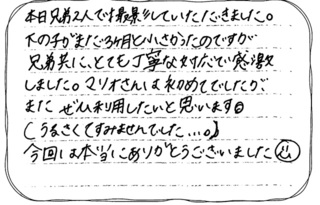 本日兄弟2人で撮影していただきました。
下の子がまだ3ヶ月と小さかったのですが
兄弟共に、とても丁寧な対応で感激
しました。マリオさんは初めてでしたが、
また ぜひ利用したいと思います
(うるさくてすみませんでした...。)
今回は本当にありがとうございました